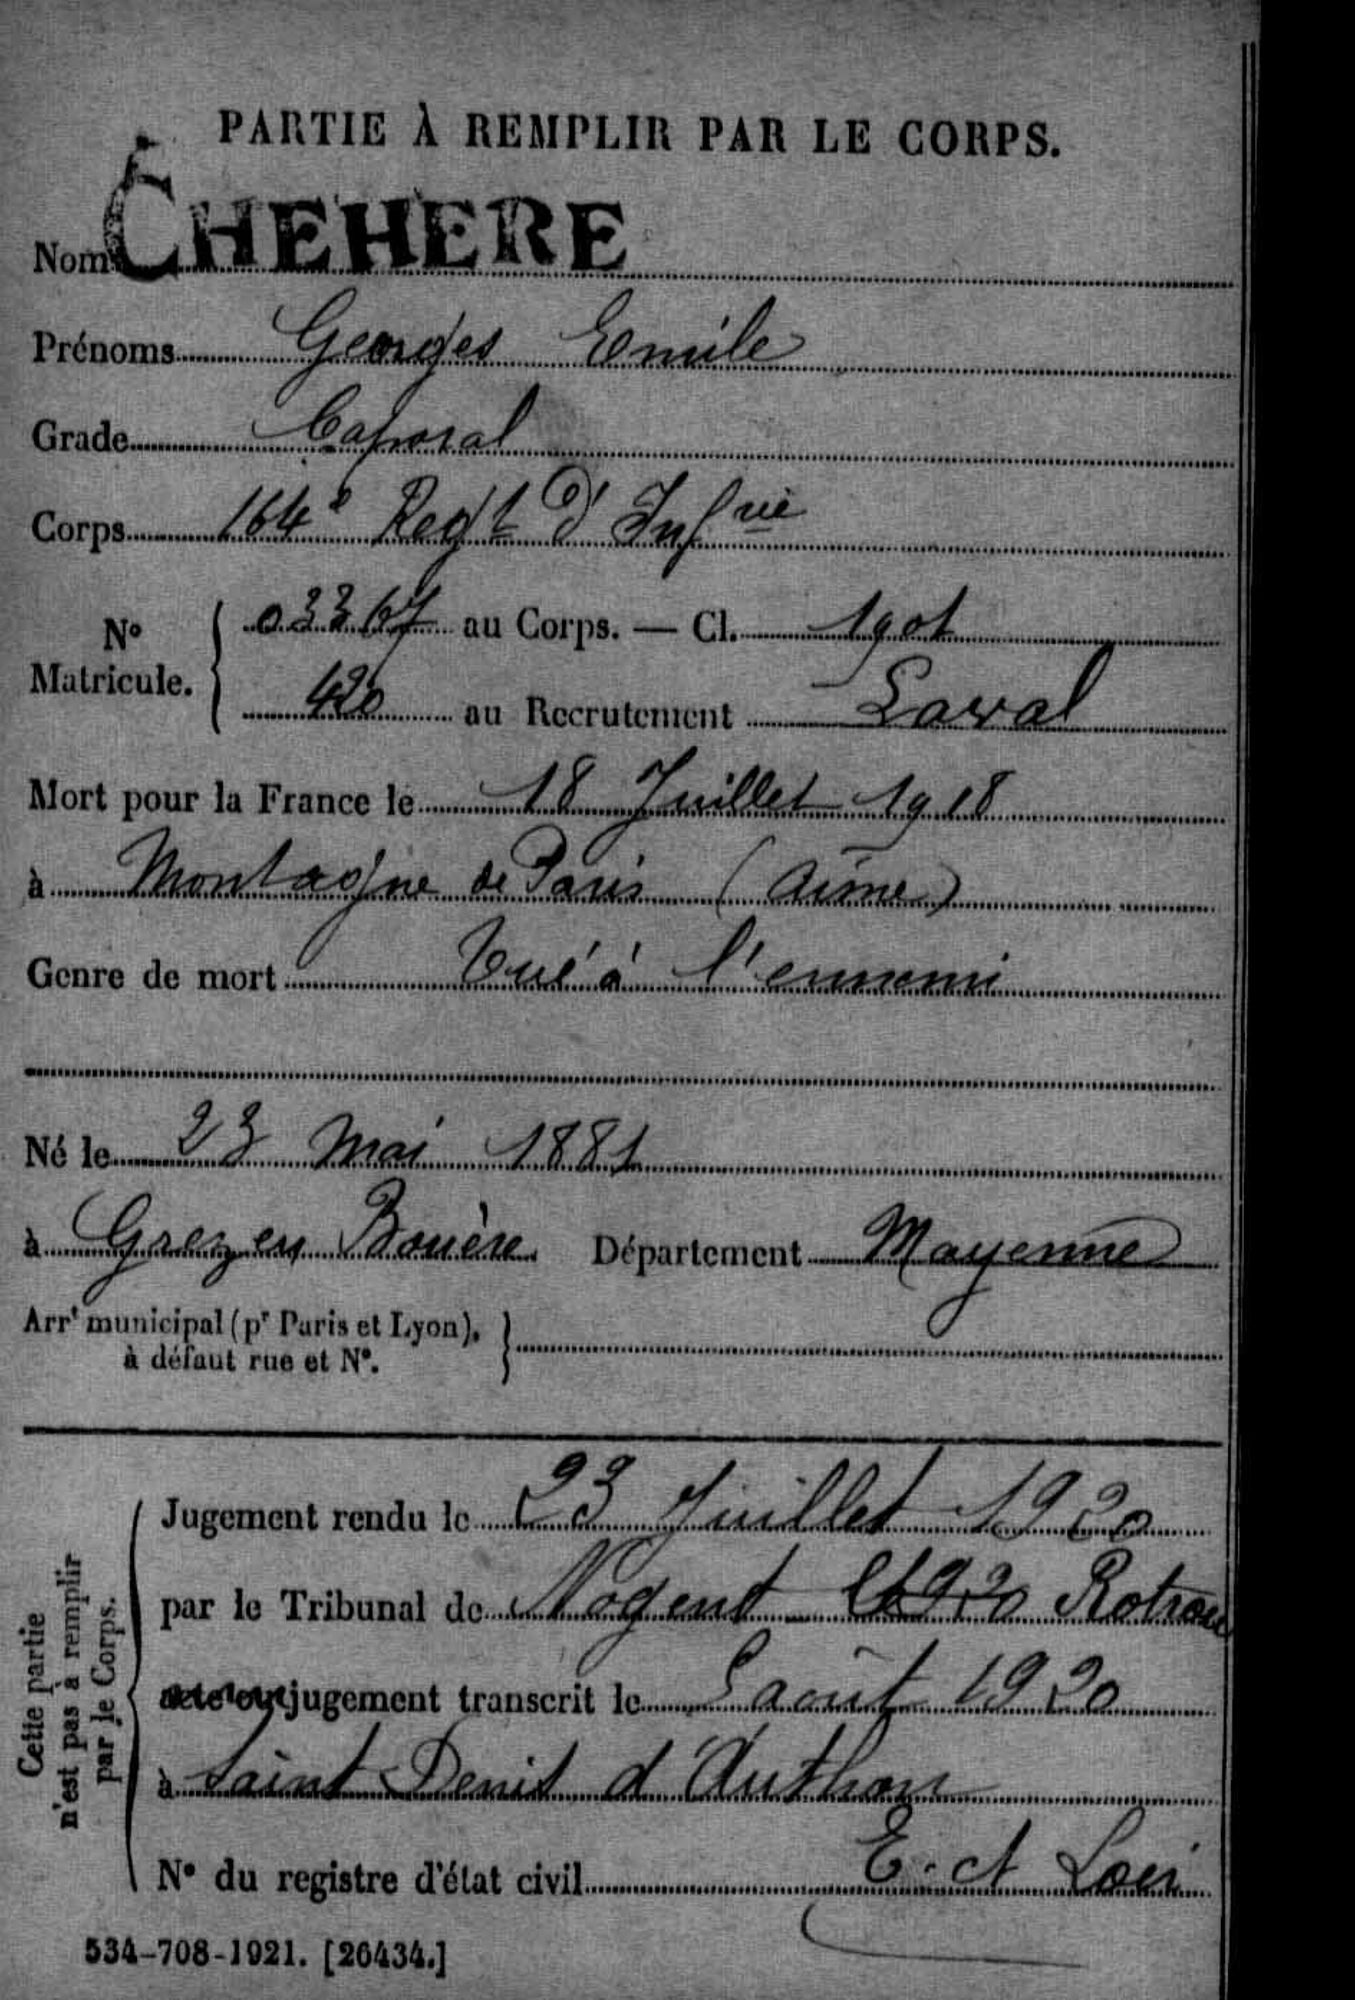 PARTIE À REMPLIR PAR LE CORPS.
Nom CHEHERE
Prénoms Georges Emile
Grade Caporal
Corps 164e Regt d'Infrie
N° Matricule. { 03367 au Corps. — Cl. 1901
420 au Recrutement Laval
Mort pour la France le 18 Juillet 1918
à Montagne de Paris (Aisne)
Genre de mort Tué à l'ennemi
Né le 23 Mai 1881
à Grez en Bouère Département Mayenne
Arrt municipal (pr Paris et Lyon), à défaut rue et N°. }
Cette partie n'est pas à remplir par le Corps.
Jugement rendu le 23 Juillet 1920
par le Tribunal de Nogent Rotrou
acte ou jugement transcrit le 5 août 1920
à Saint Denis d'Authou
N° du registre d'état civil E. et Loir
534-708-1921. [26434.]